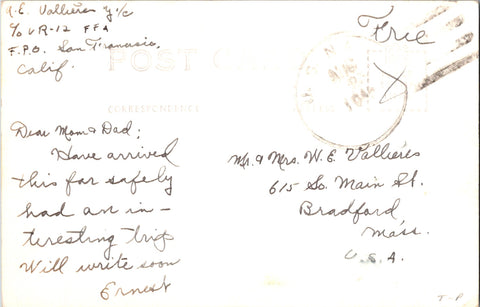 A. E. Vallières Y1/c
c/o VR-12 FFA
F.P.O. San Francisco,
Calif.
Free
POST CARD
CORRESPONDENCE
Dear Mom & Dad;
Have arrived
this far safely
had an in-
teresting trip
Will write soon
Ernest
Mr. & Mrs. W. E. Vallières
615 So. Main St.
Bradford
Mass.
U.S.A.
T-P